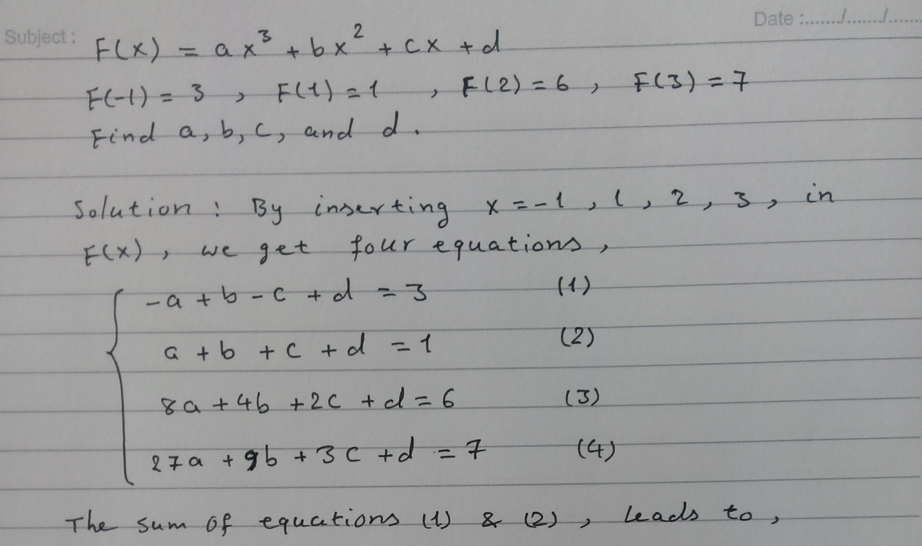 Date :......./......./.......
Subject : F(x) = ax³ + bx² + cx + d
F(-1) = 3 , F(1) = 1 , F(2) = 6 , F(3) = 7
Find a, b, c, and d.
Solution : By inserting x = -1 , 1 , 2 , 3 , in
F(x) , we get four equations ,
-a + b - c + d = 3 (1)
a + b + c + d = 1 (2)
8a + 4b + 2c + d = 6 (3)
27a + 9b + 3c + d = 7 (4)
The sum of equations (1) & (2) , leads to ,